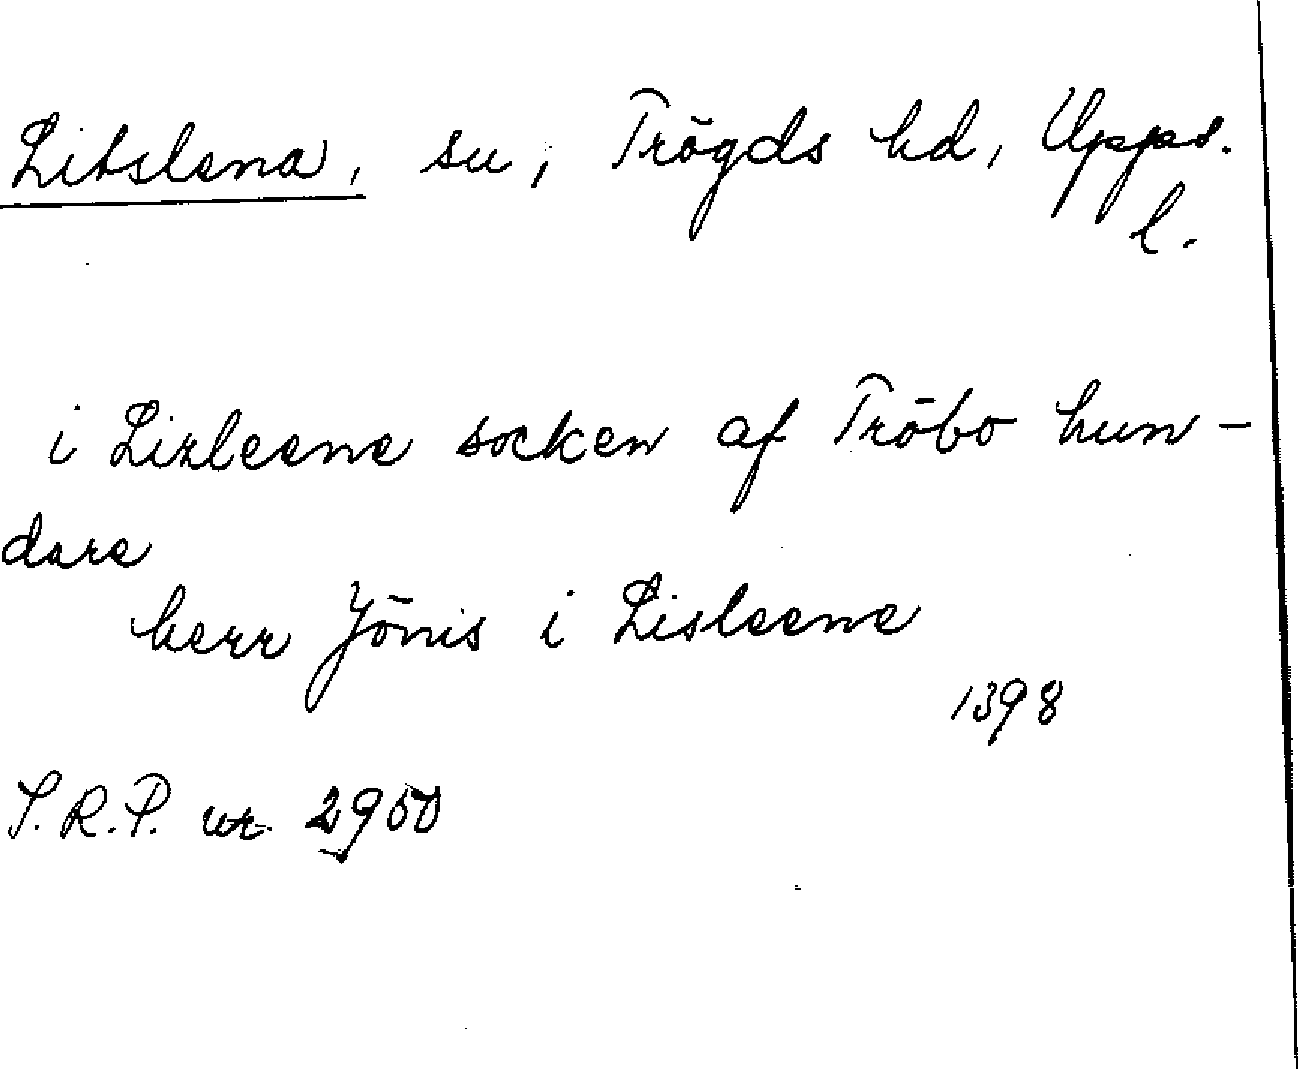 Litslena, sn, Trögds hd, Upps.
l.
i Lizleene socken af Tröbo hun-
dare
herr Jönis i Lisleene
1398
S.R.P. nr 2950